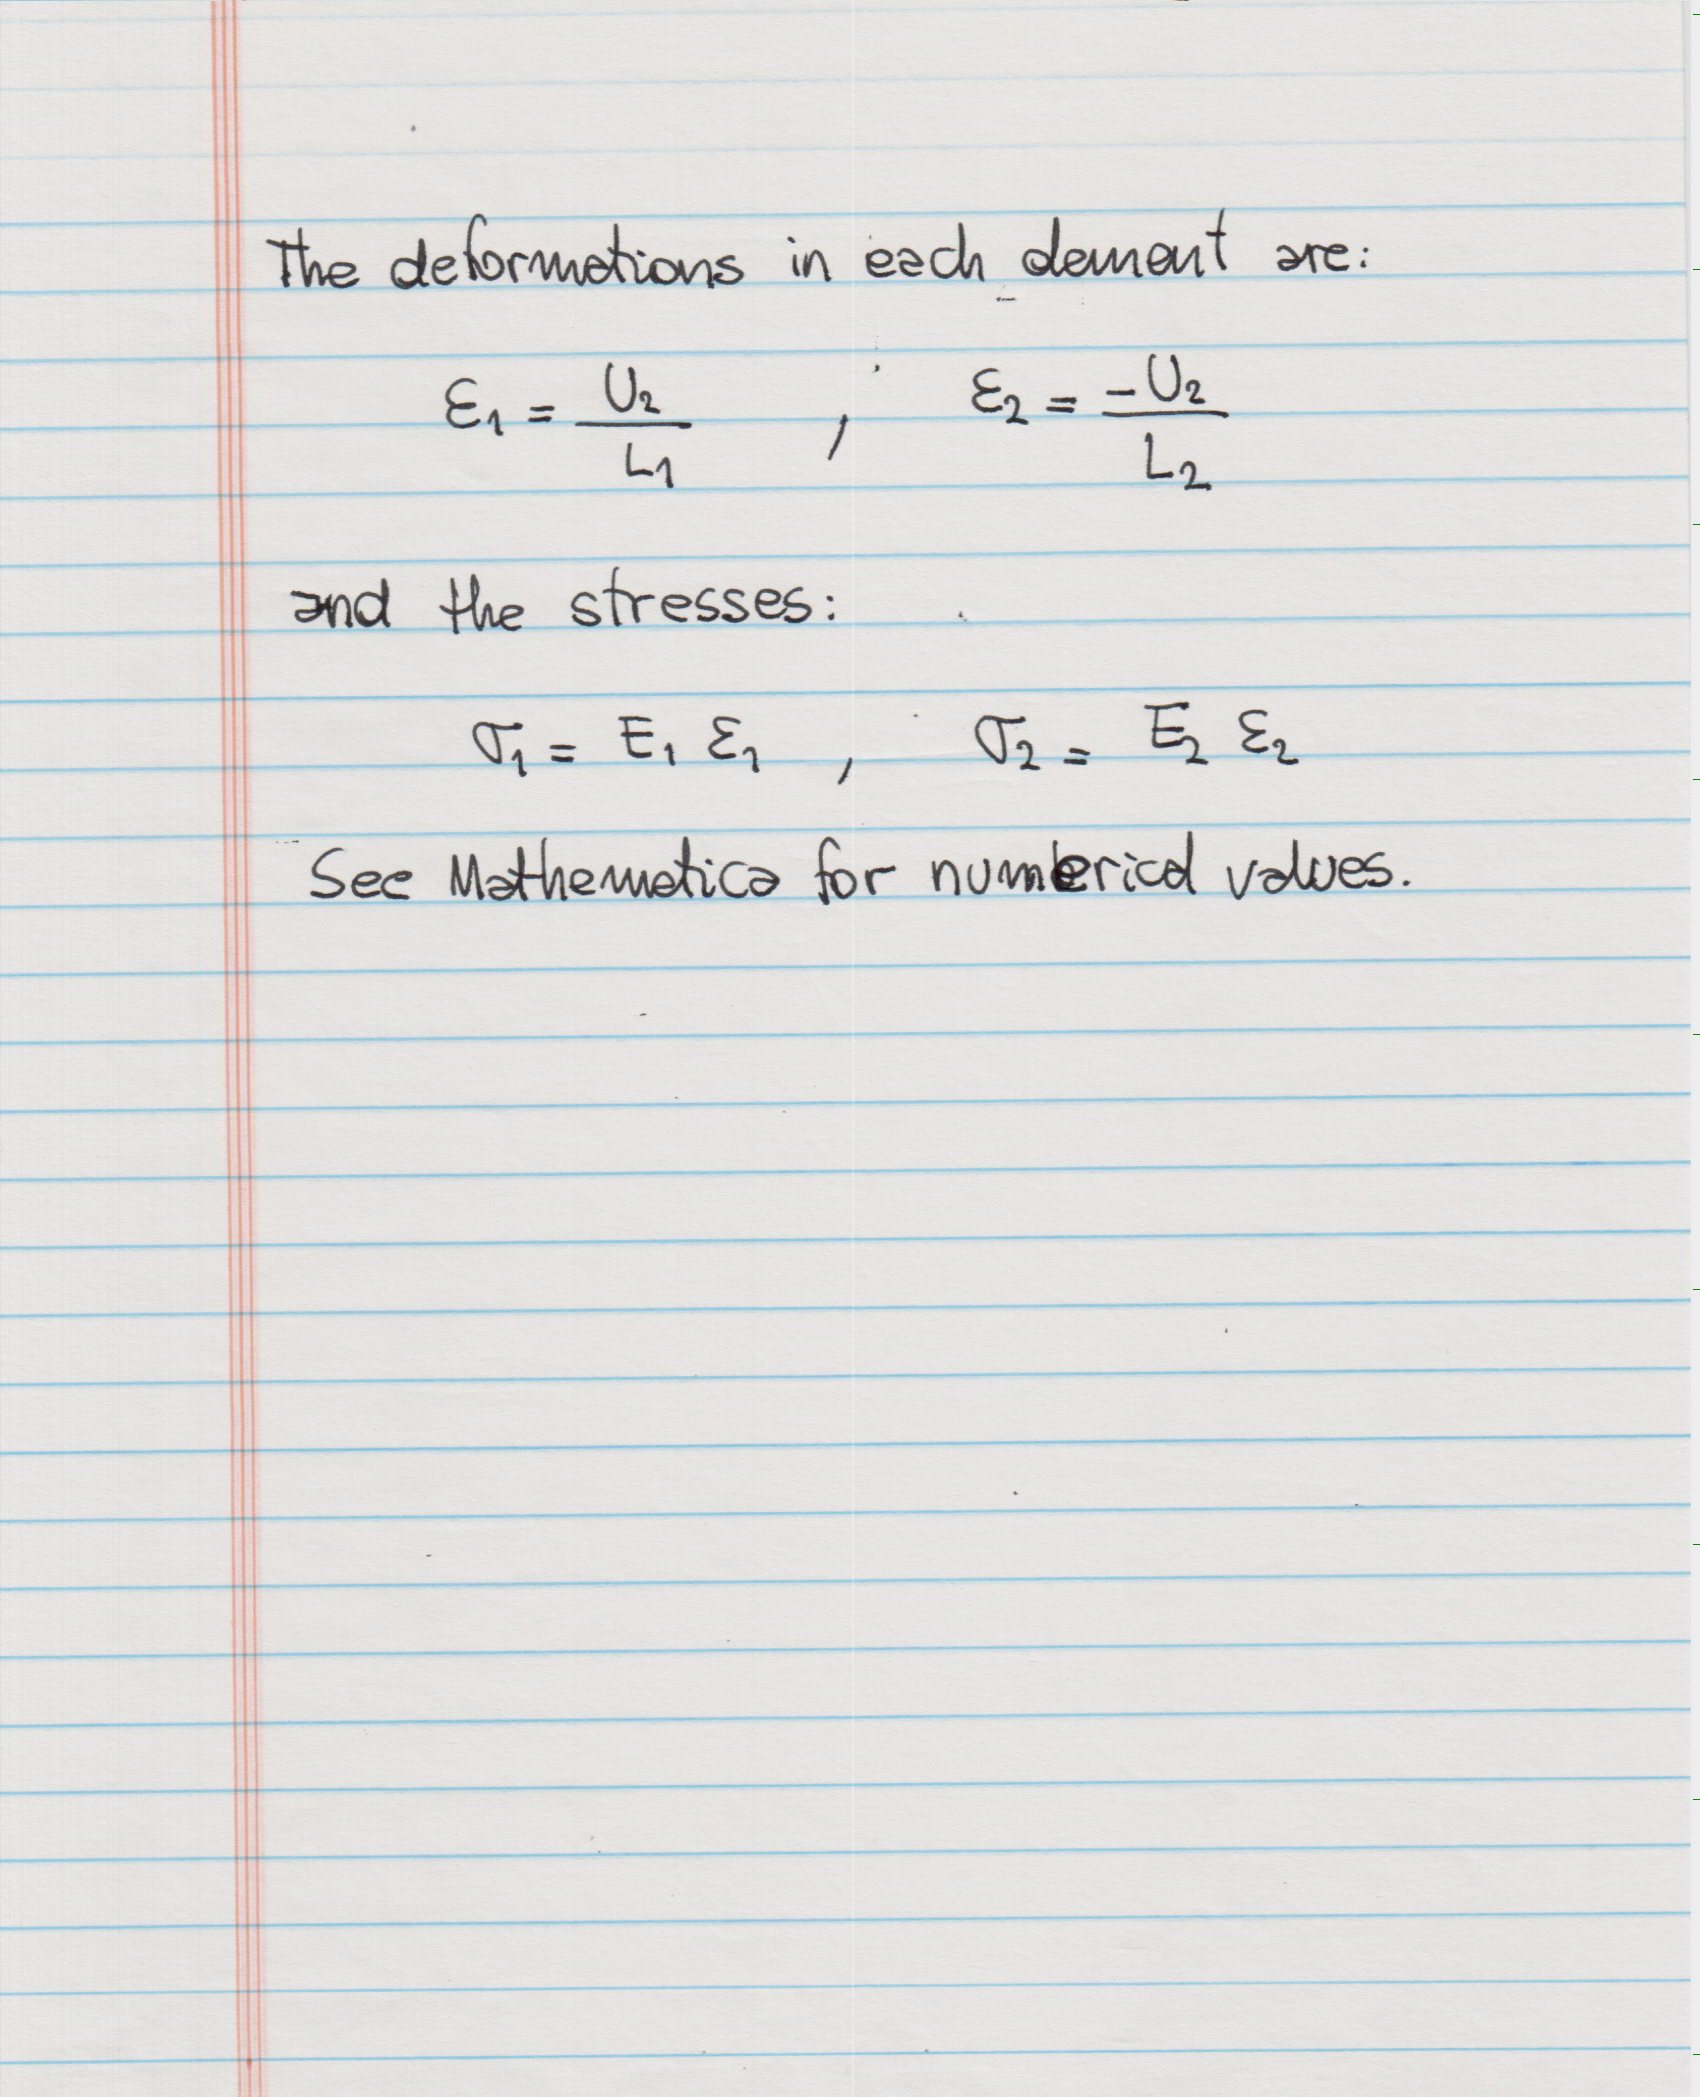 The deformations in each element are:
ε₁ = U₂/L₁ , ε₂ = -U₂/L₂
and the stresses:
σ₁ = E₁ ε₁ , σ₂ = E₂ ε₂
See Mathematica for numerical values.